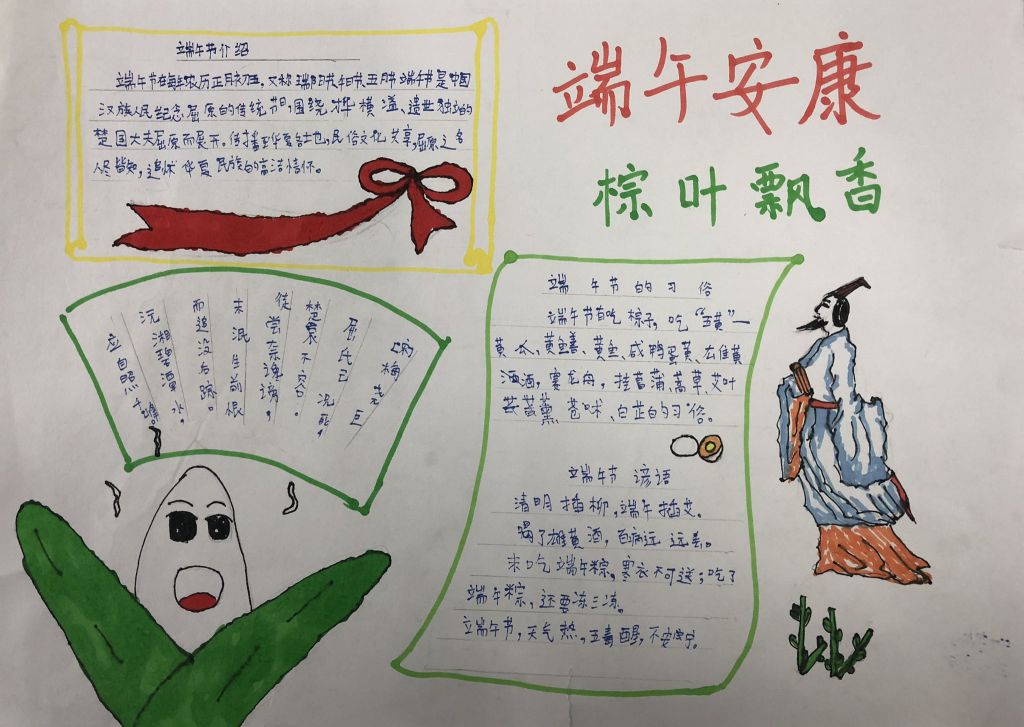 端午安康
棕叶飘香
端午节介绍
端午节在每年农历正月初五,又称端阳节、午日节、五月节、端午节是中国
汉族人民纪念屈原的传统节日,围绕才华横溢、遗世独立的
楚国大夫屈原而展开。传播至华夏各地,民俗文化共享,屈原之名
人尽皆知,追怀华夏民族的高洁情怀。
[宋]梅尧臣
屈氏已沉死,
楚人哀不容。
何尝奈谗谤,
徒
未泯生前恨
而追没后踪。
沅湘碧潭水,
应自照千峰。
端午节的习俗
端午节有吃棕子,吃“五黄”一
黄瓜、黄鳝、黄鱼、咸鸭蛋黄、雄黄
酒,赛龙舟,挂菖蒲、蒿草、艾叶
苍术、白芷的习俗。
端午节谚语
清明插柳,端午插艾。
喝了雄黄酒,百病远远丢。
未吃端午粽,寒衣不可送;吃了
端午粽,还要冻三冻。
端午节,天气热,五毒醒,不安宁。